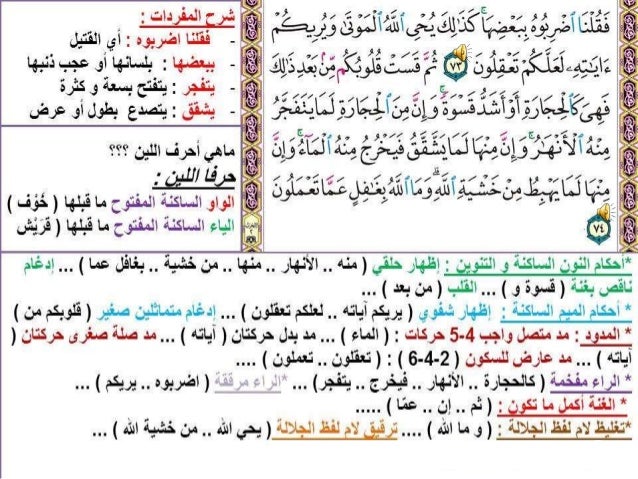 فَقُلْنَا ٱضْرِبُوهُ بِبَعْضِهَا ۚ كَذَٰلِكَ يُحْىِ ٱللَّهُ ٱلْمَوْتَىٰ وَيُرِيكُمْ
ءَايَٰتِهِۦ لَعَلَّكُمْ تَعْقِلُونَ ٧٣ ثُمَّ قَسَتْ قُلُوبُكُم مِّنۢ بَعْدِ ذَٰلِكَ
فَهِىَ كَٱلْحِجَارَةِ أَوْ أَشَدُّ قَسْوَةً ۚ وَإِنَّ مِنَ ٱلْحِجَارَةِ لَمَا يَتَفَجَّرُ
مِنْهُ ٱلْأَنْهَٰرُ ۚ وَإِنَّ مِنْهَا لَمَا يَشَّقَّقُ فَيَخْرُجُ مِنْهُ ٱلْمَآءُ ۚ وَإِنَّ
مِنْهَا لَمَا يَهْبِطُ مِنْ خَشْيَةِ ٱللَّهِ ۗ وَمَا ٱللَّهُ بِغَٰفِلٍ عَمَّا تَعْمَلُونَ
٧٤
شرح المفردات :
- فقلنا اضربوه : أي القتيل
- ببعضها : بلسانها أو عجب ذنبها
- يتفجر : يتفتح بسعة و كثرة
- يشقق : يتصدع بطول أو عرض
ماهي أحرف اللين ؟؟؟
حرفا اللين :
الواو الساكنة المفتوح ما قبلها ( خَوْف )
الياء الساكنة المفتوح ما قبلها ( قرَيْش
*أحكام النون الساكنة و التنوين : إظهار حلقي ( منه .. الأنهار .. منها .. من خشية .. بغافل عما ) ... إدغام
ناقص بغنة ( قسوة و ) ... القلب ( من بعد ) ...
* أحكام الميم الساكنة : إظهار شفوي ( يريكم آياته .. لعلكم تعقلون ) ... إدغام متماثلين صغير ( قلوبكم من )
* المدود : مد متصل واجب 4-5 حركات : ( الماء ) ... مد بدل حركتان ( آياته ) ... مد صلة صغرى حركتان (
آياته ) ... مد عارض للسكون ( 2-4-6 ) : ( تعقلون .. تعملون ) ....
* الراء مفخمة ( كالحجارة .. الأنهار .. فيخرج .. يتفجر) ... *الراء مرققة ( اضربوه .. يريكم ) ...
* الغنة أكمل ما تكون : ( ثم .. إن .. عمّا ) .....
*تغليظ لام لفظ الجلالة : ( و ما الله ) .... ترقيق لام لفظ الجلالة ( يحي الله .. من خشية الله ) ...